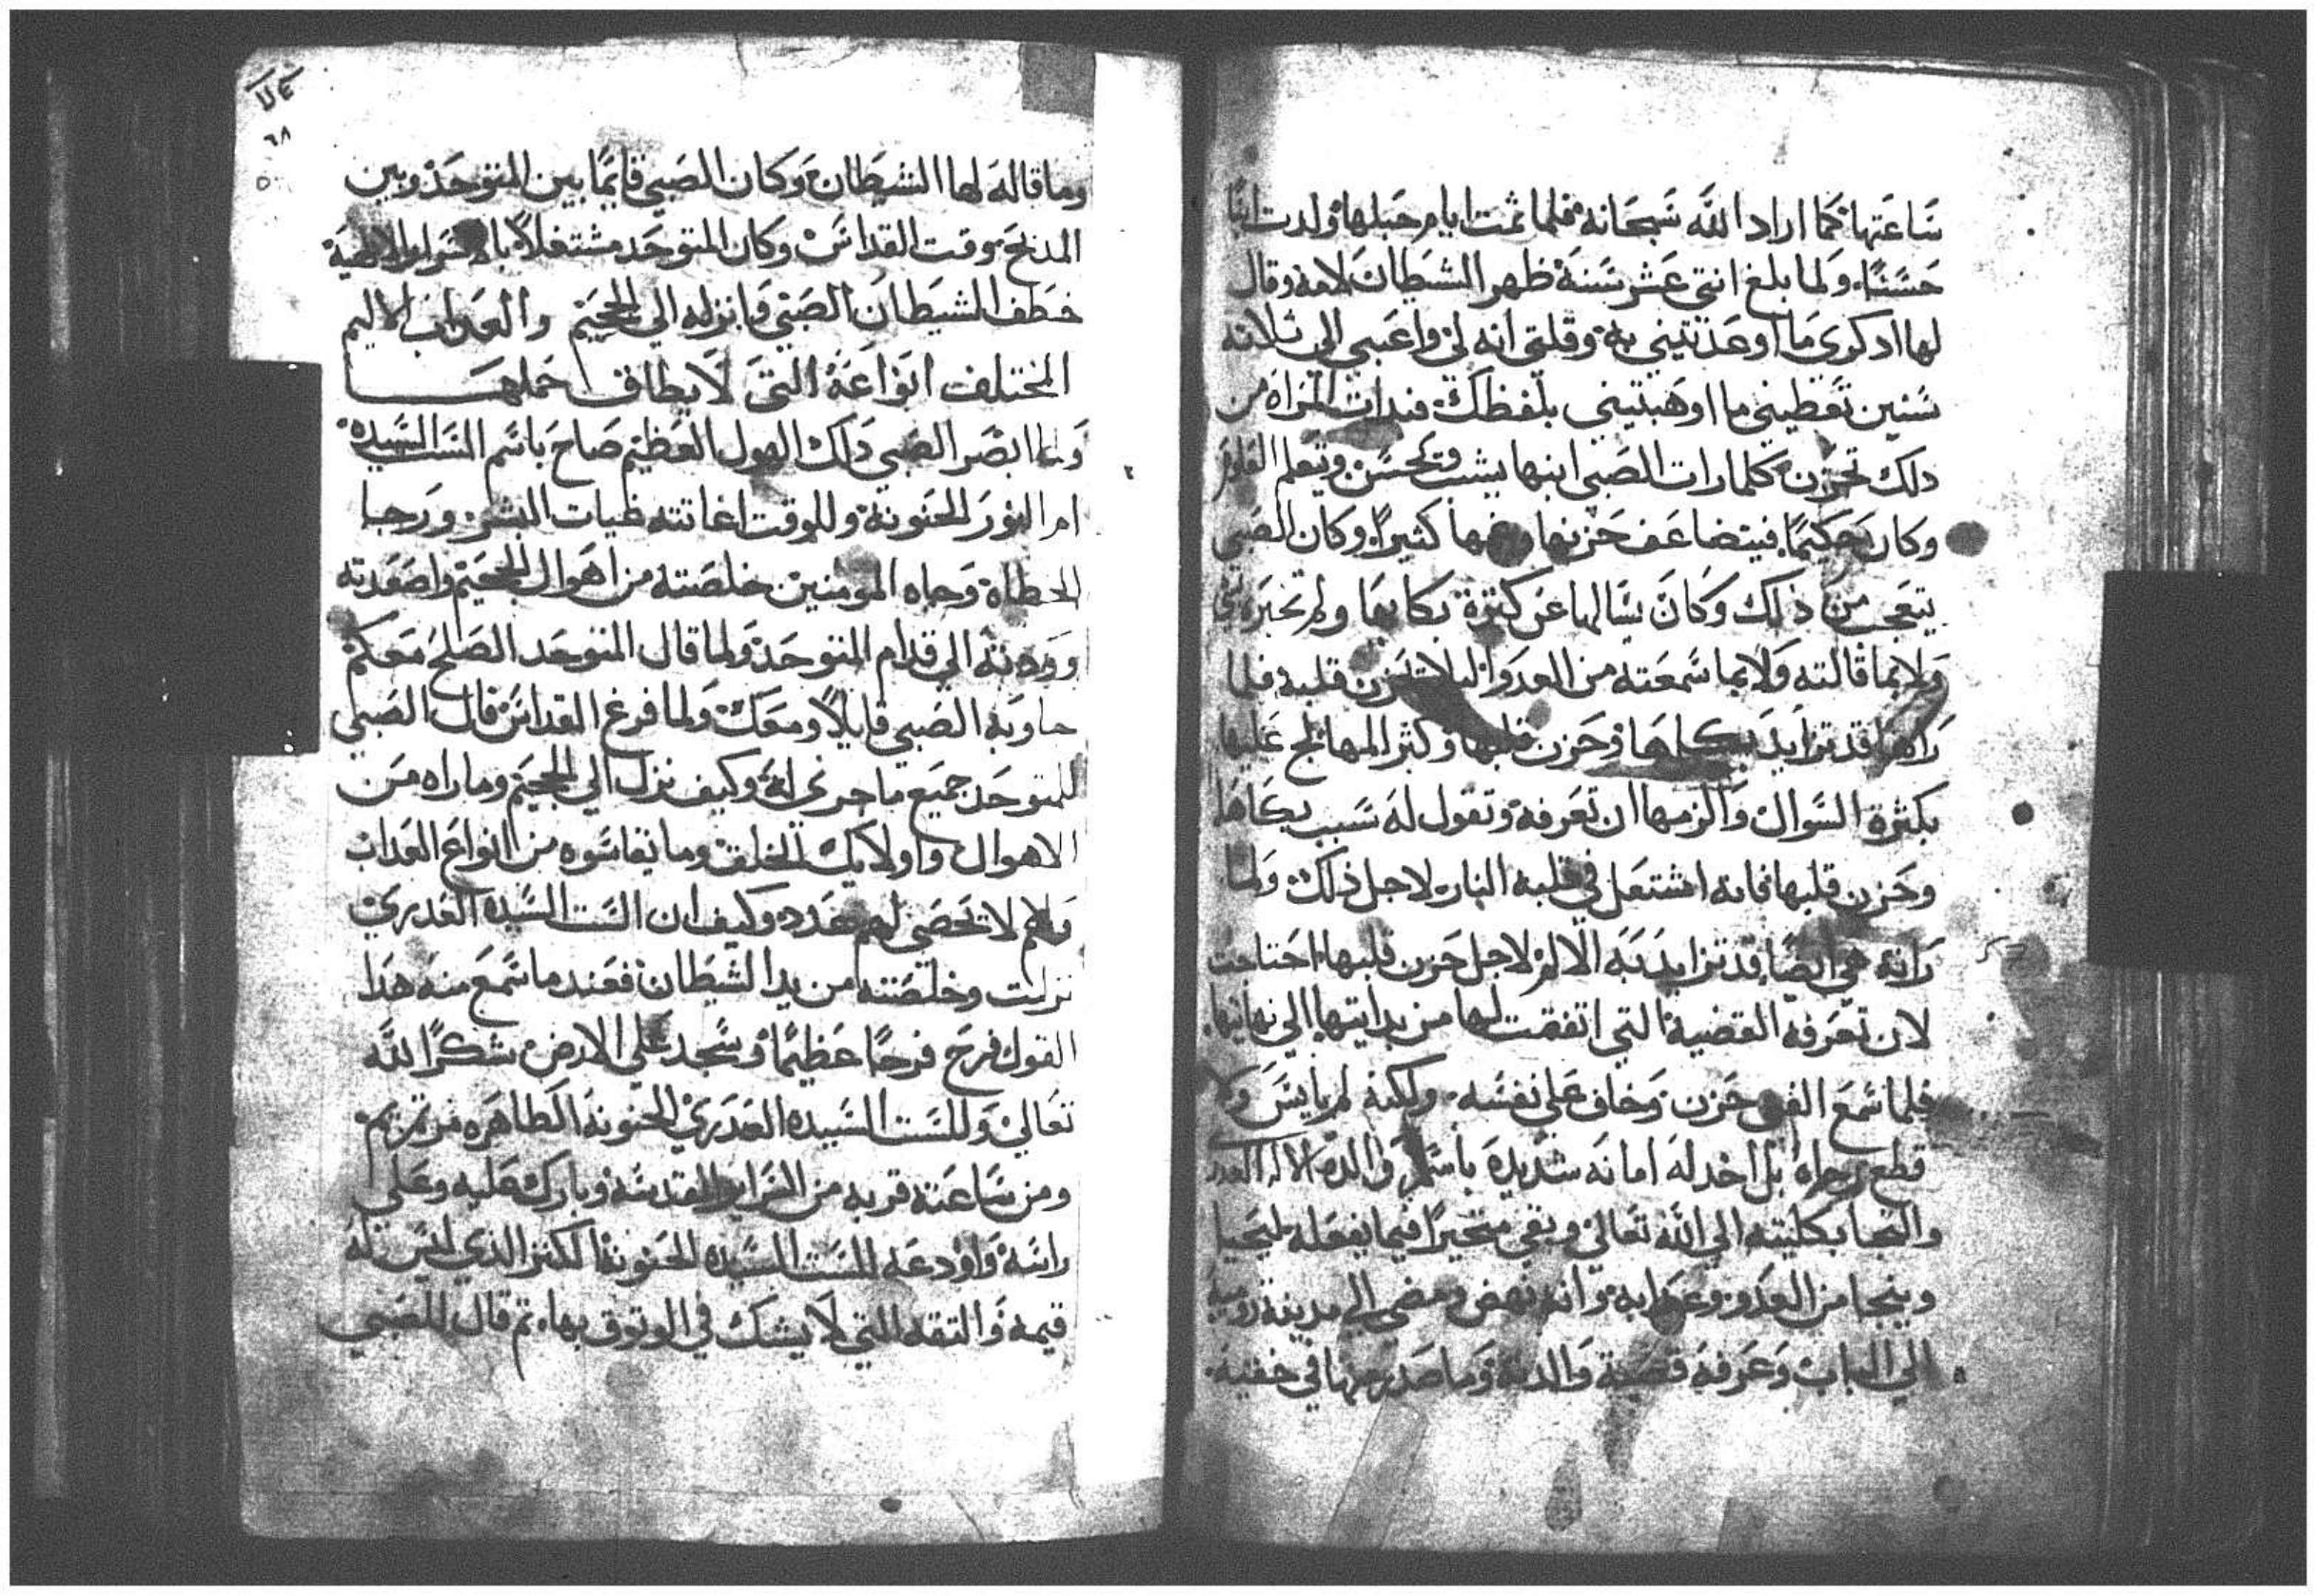 ساعتها كما اراد الله سبحانه فلما تمت ايام حبلها ولدت ابنا
حسنا ولما بلغ اثني عشر سنة ظهر الشيطان لامه وقال
لها ادكري ما اوعدتيني به وقلتي انه لي واعبي الى ثلاثة
سنين تعطيني ما اوهبتيني بلفظك فبدات المراه من
دلك تحزن كلما رات الصبي ابنها يشب ويحسن ويتعلم العلوم
وكان حكيما فيتضاعف حزنها كثيرا وكان الصبي
يتعجب من ذلك وكان يسالها عن كثرة بكايها ولم تخبره
ولا بما قالته ولا بما سمعته من العدو ليلا تحزن قلبه فلما
راها قد تزايد بكاها وحزن قلبها وكثر المها لج عليها
بكثرة السوال والزمها ان تعرفه وتقول له سبب بكاها
وحزن قلبها فانه اشتعل في قلبه النار لاجل ذلك ولما
راته هي ايضا قد تزايد به الالم لاجل حزن قلبها احتاجت
لان تعرفه القضية التي اتفقت لها من بدايتها الي نهايتها
فلما سمع حزن وخاف على نفسه ولكنه لم يايس ولا
قطع رجاه بل اخد له امانه شديدة باسم والدة الاله العدرى
والتجا بكليته الي الله تعالي وبقي متحيرا فيما يفعله ليحيا
وينجا من العدو وانه نهض ومضى الي مدينة روميه
الي الباب وعرفه قضية والدته وما صدر منها في خفية
٦٨
وما قاله لها الشيطان وكان الصبي قايما بين المتوحد وبين
المدبح وقت القداس وكان المتوحد مشتغلا بالاسرار الالهية
خطف الشيطان الصبي وانزله الي الجحيم والعداب الاليم
المختلف انواعه التي لا يطاق حملها
ولما ابصر الصبي دلك الهول العظيم صاح باسم الست السيده
ام النور الحنونة وللوقت اغاثته غيات البشر ورجا
الخطاة وجاه المومنين خلصته من اهوال الجحيم واصعدته
وردته الي قدام المتوحد ولما قال المتوحد الصلح معكم
جاوبه الصبي قايلا ومعك ولما فرغ القداس قال الصبي
للمتوحد جميع ما جرى له وكيف نزل الي الجحيم وما راه من
الاهوال واولايك الخلق وما يقاسوه من انواع العداب
وهم لا تحصى لهم عدد وكيف ان الست السيده العدرى
نزلت وخلصته من يد الشيطان فعند ما سمع منه هدا
القول فرح فرحا عظيما وسجد على الارض شكرا لله
تعالي وللست السيده العدرى الحنونة الطاهره مرتمريم
ومن ساعته قربه من السراير المقدسه وبارك عليه وعلى
راسه واودعه للست السيده الحنونة الكنز الذي ليس له
قيمه والتقه التي لا يشك في الوتوق بها تم قال للصبي